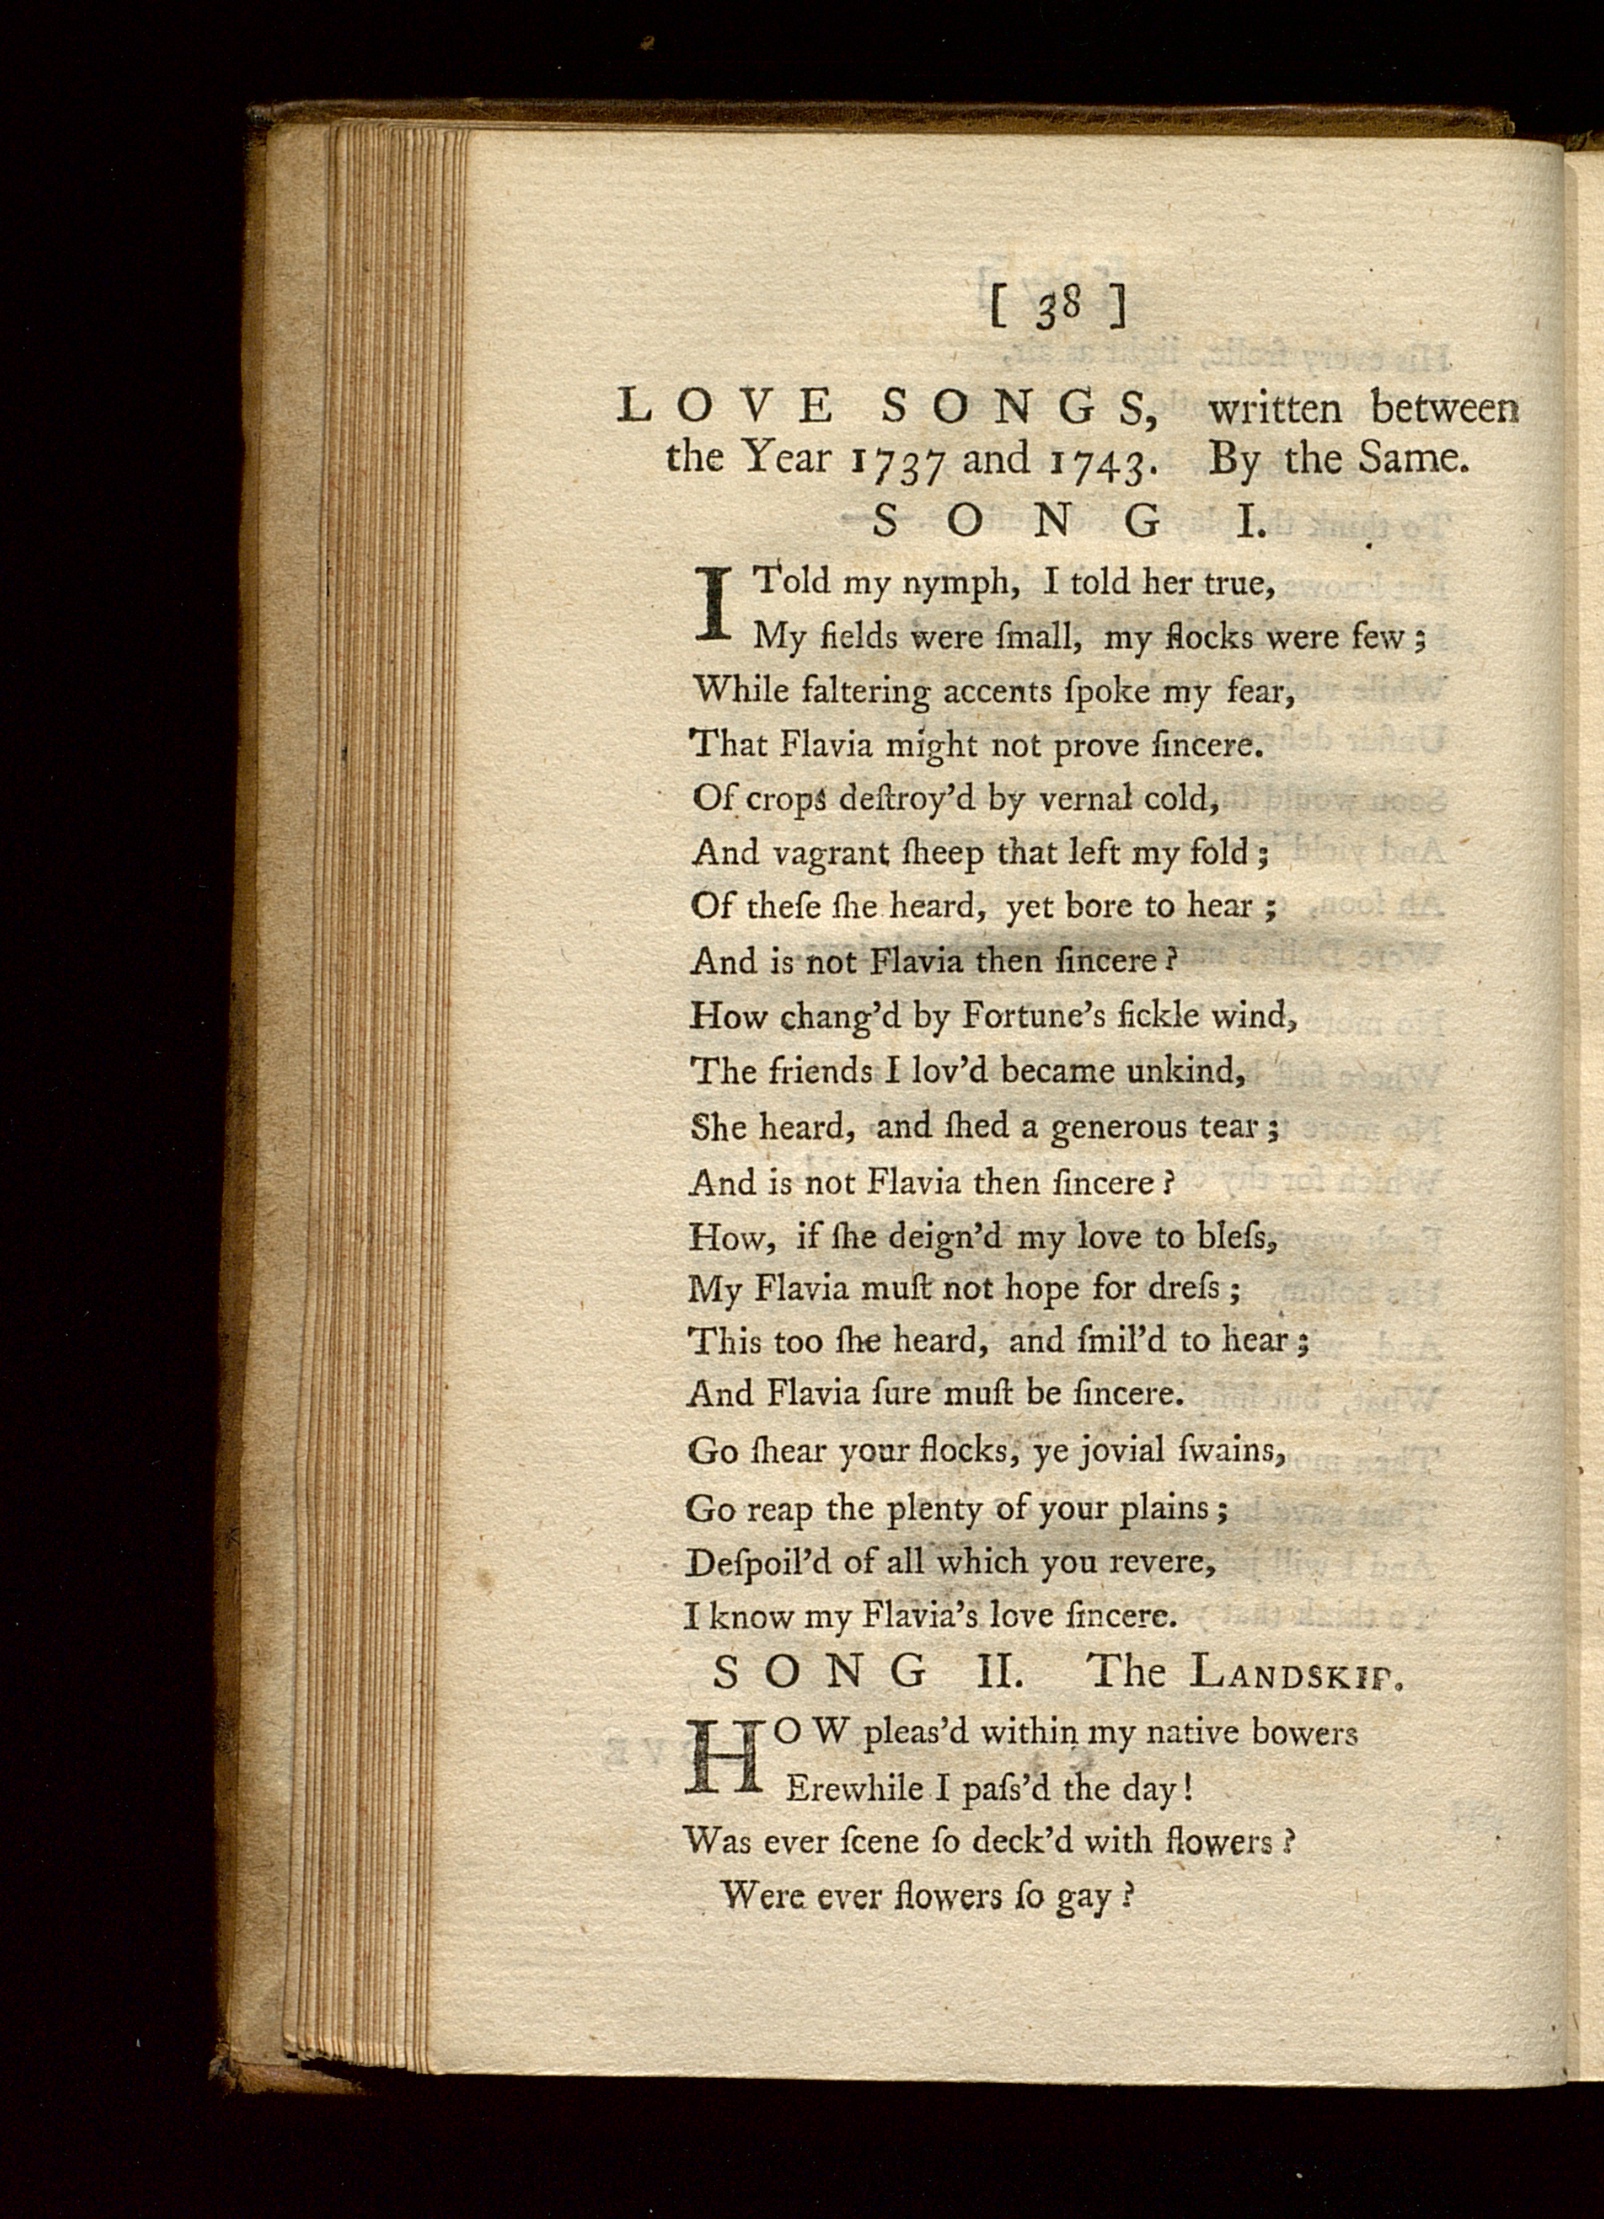 [ 38 ]
LOVE SONGS, written between
the Year 1737 and 1743. By the Same.
SONG I.
I Told my nymph, I told her true,
My fields were ſmall, my flocks were few;
While faltering accents ſpoke my fear,
That Flavia might not prove ſincere.
Of crops deſtroy'd by vernal cold,
And vagrant ſheep that left my fold;
Of theſe ſhe heard, yet bore to hear;
And is not Flavia then ſincere?
How chang'd by Fortune's fickle wind,
The friends I lov'd became unkind,
She heard, and ſhed a generous tear;
And is not Flavia then ſincere?
How, if ſhe deign'd my love to bleſs,
My Flavia muſt not hope for dreſs;
This too ſhe heard, and ſmil'd to hear;
And Flavia ſure muſt be ſincere.
Go ſhear your flocks, ye jovial ſwains,
Go reap the plenty of your plains;
Deſpoil'd of all which you revere,
I know my Flavia's love ſincere.
SONG II. The LANDSKIP.
HOW pleas'd within my native bowers
Erewhile I paſs'd the day!
Was ever ſcene ſo deck'd with flowers?
Were ever flowers ſo gay?